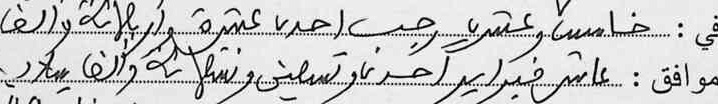 في : خامس وعشرين رجب احدى عشرة وأربعمائة وألف
موافق : عاشر فبراير أحدى وتسعين وتسعمائة وألف ميلادي